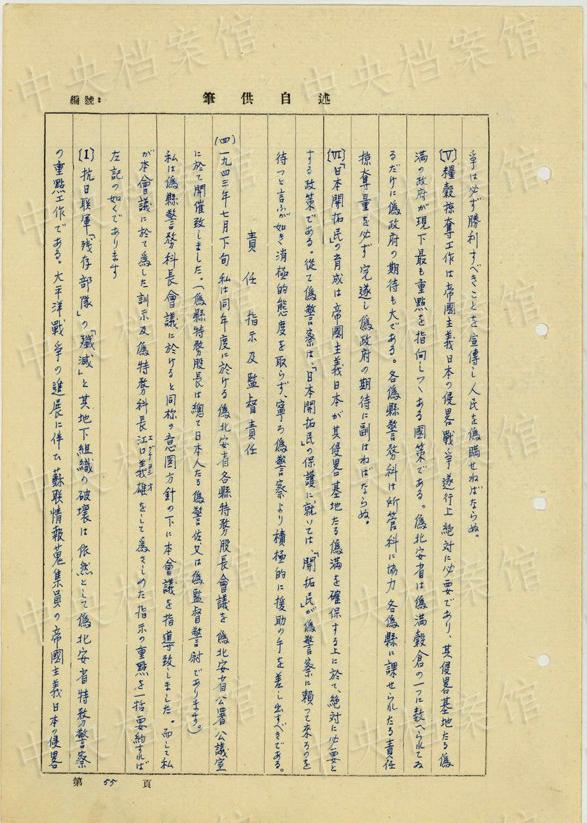 編號:
筆供自述
爭は必ず勝利すべきことを宣傳し人民を偽瞞せねばならぬ。
〔Ⅴ〕糧穀掠奪工作は帝國主義日本の侵畧戰爭遂行上絶対に必要であり、其侵畧基地たる偽
満の政府が現下最も重點を指向しつゝある國策である。偽北安省は偽満穀倉の一つに数へられてゐ
るだけに偽政府の期待も大である。各偽縣警務科は所管科に協力各偽縣に課せられたる責任
掠奪量を必ず完遂し偽政府の期待に副はねばならぬ。
〔Ⅵ〕「日本開拓民」の育成は帝國主義日本が其侵畧基地たる偽満を確保する上に於て絶対に必要と
する政策である。從て偽警察は、「日本開拓民」の保護に就いては、「開拓民」が偽警察に頼って来るのを
待つと言ふが如き消極的態度を取らず、寧ろ偽警察より積極的に援助の手を差し出すべきである。
責任 指示及監督責任
(四)一九四三年七月下旬私は同年度に於ける偽北安省各縣特務股長會議を偽北安省公署公議室
に於て開催致しました。(偽縣特務股長は總て日本人たる偽警佐又は偽監督警尉であります)
私は偽縣警務科長會議に於けると同様の意圖方針の下に本會議を指導致しました。而して私
が本會議に於て為した訓示及偽特務科長江口義雄をして為さしめた指示の重點を一括要約すれば
左記の如くであります
〔Ⅰ〕抗日聯軍「残存部隊」の「殲滅」と其地下組織の破壊は依然として偽北安省特務警察
の重點工作である。太平洋戰爭の進展に伴ひ蘇联情報蒐集員の帝國主義日本の侵畧
第 55 頁
中央档案馆